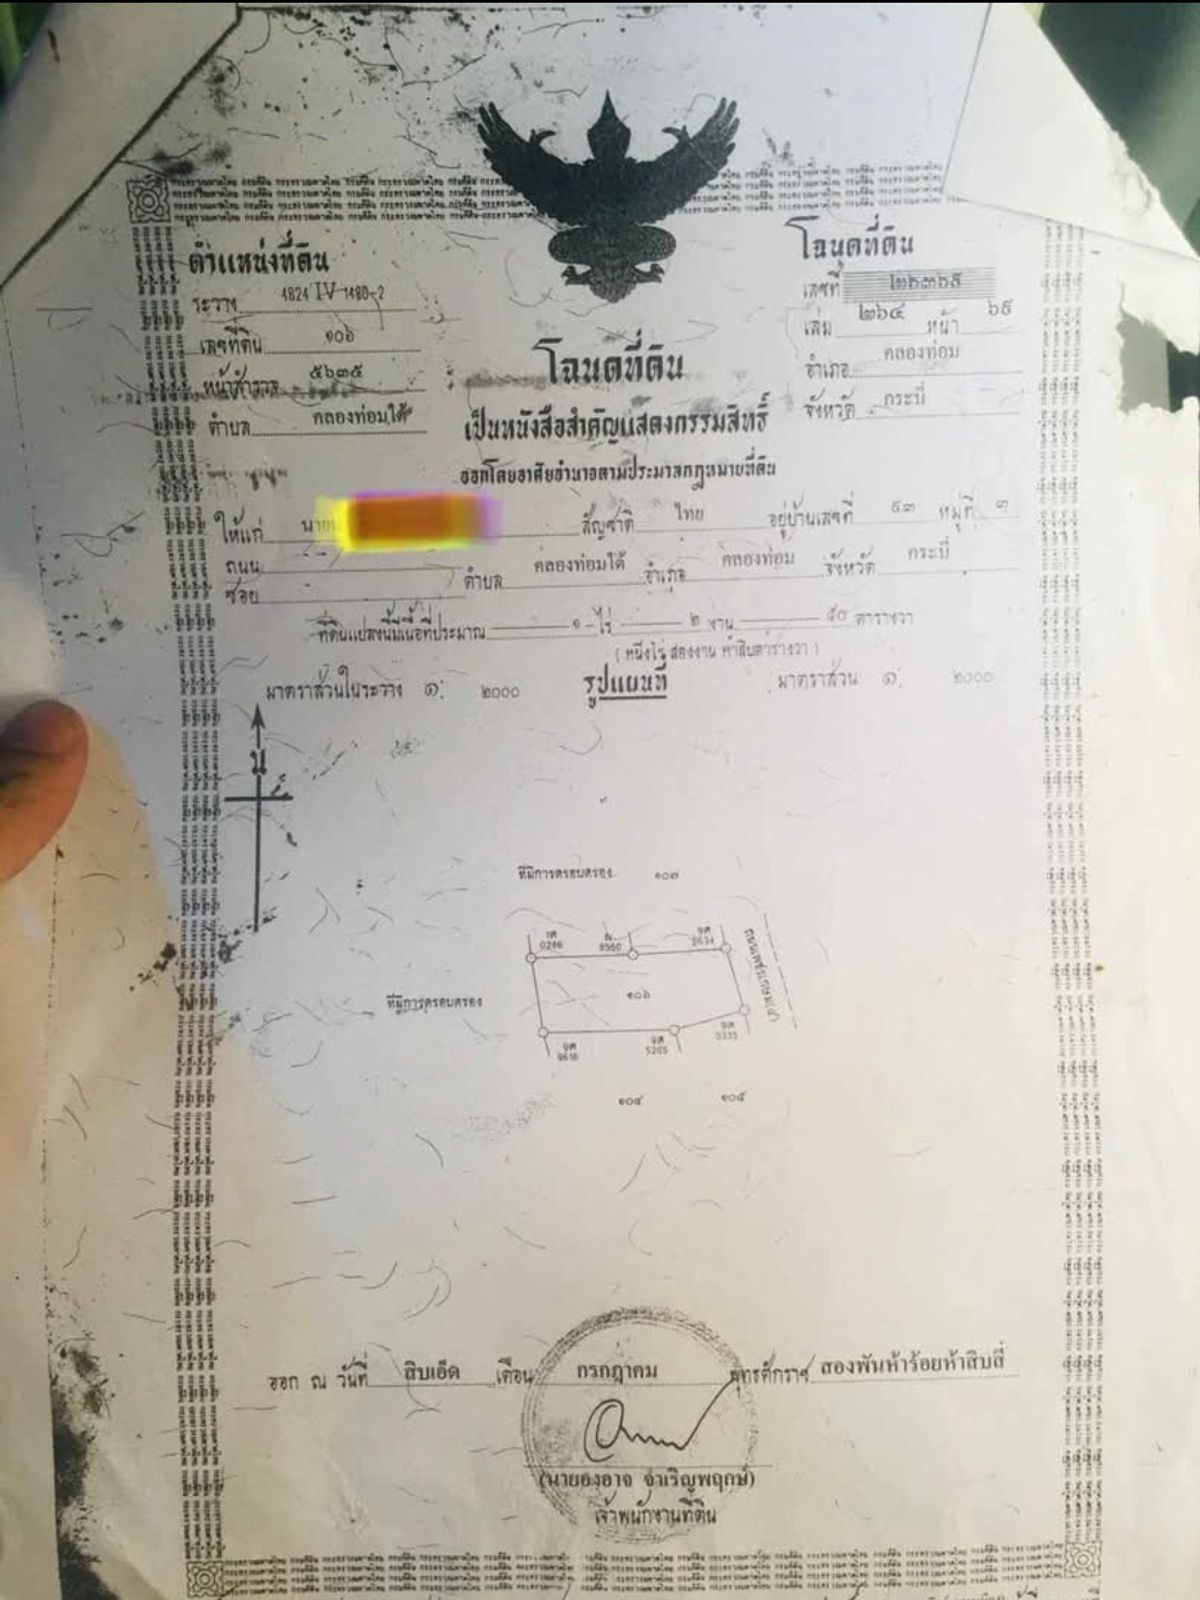 ตำแหน่งที่ดิน
ระวาง 4824 IV 1480-2
เลขที่ดิน ๑๐๖
หน้าสำรวจ ๕๖๓๕
ตำบล คลองท่อมใต้
โฉนดที่ดิน
เลขที่ ๒๖๓๖๕
เล่ม ๒๖๔ หน้า ๖๕
อำเภอ คลองท่อม
จังหวัด กระบี่
โฉนดที่ดิน
เป็นหนังสือสำคัญแสดงกรรมสิทธิ์
ออกโดยอาศัยอำนาจตามประมวลกฎหมายที่ดิน
ให้แก่ นาย สัญชาติ ไทย อยู่บ้านเลขที่ ๕๓ หมู่ที่ ๓
ถนน
ซอย ตำบล คลองท่อมใต้ อำเภอ คลองท่อม จังหวัด กระบี่
ที่ดินแปลงนี้มีเนื้อที่ประมาณ ๑ ไร่ ๒ งาน ๕๐ ตารางวา
( หนึ่งไร่ สองงาน ห้าสิบตารางวา )
มาตราส่วนในระวาง ๑: ๒๐๐๐ รูปแผนที่ มาตราส่วน ๑: ๒๐๐๐
น
ที่มีการครอบครอง ๑๐๗
0286 9560
ที่มีการครอบครอง
๑๐๖
ถนนเพชรเกษม(๔)
9616 5265 5335
๑๐๔ ๑๐๕
ออก ณ วันที่ สิบเอ็ด เดือน กรกฎาคม พุทธศักราช สองพันห้าร้อยห้าสิบสี่
(นายองอาจ จำเริญพฤกษ์)
เจ้าพนักงานที่ดิน